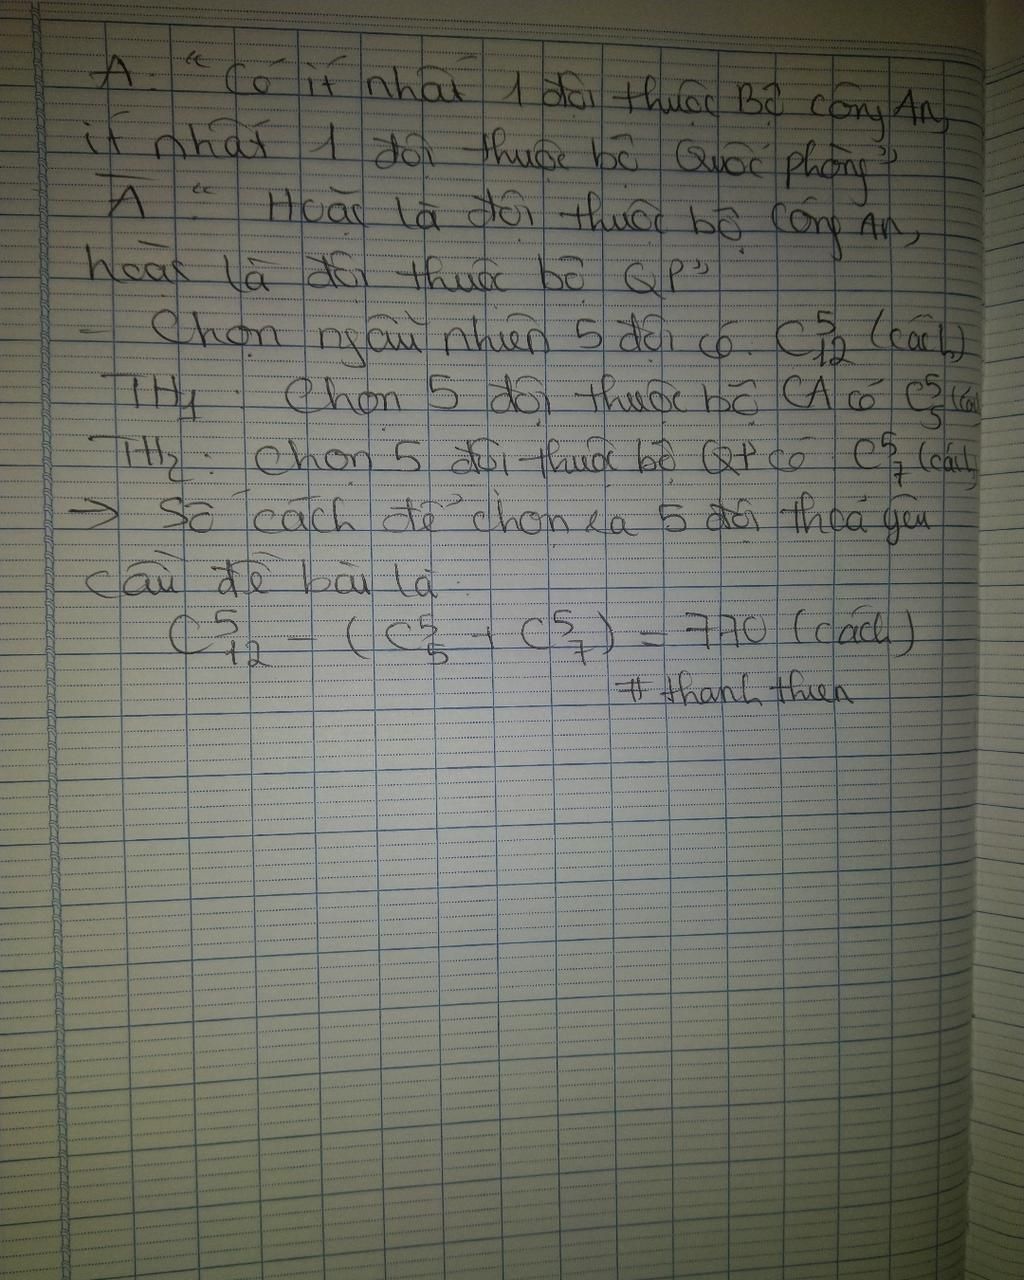 A. "Có ít nhất 1 đội thuộc Bộ công An,
ít nhất 1 đội thuộc bộ Quốc phòng"
A̅ " Hoặc là đội thuộc bộ Công An,
hoặc là đội thuộc bộ QP"
- Chọn ngẫu nhiên 5 đội có C⁵₁₂ (cách)
TH₁: Chọn 5 đội thuộc bộ CA có C⁵₅ (các
TH₂: Chọn 5 đội thuộc bộ QP có C⁵₇ (cách)
→ Số cách để chọn ra 5 đội thoả yêu
cầu đề bài là
C⁵₁₂ - (C⁵₅ + C⁵₇) = 770 (cách)
# thanh thien